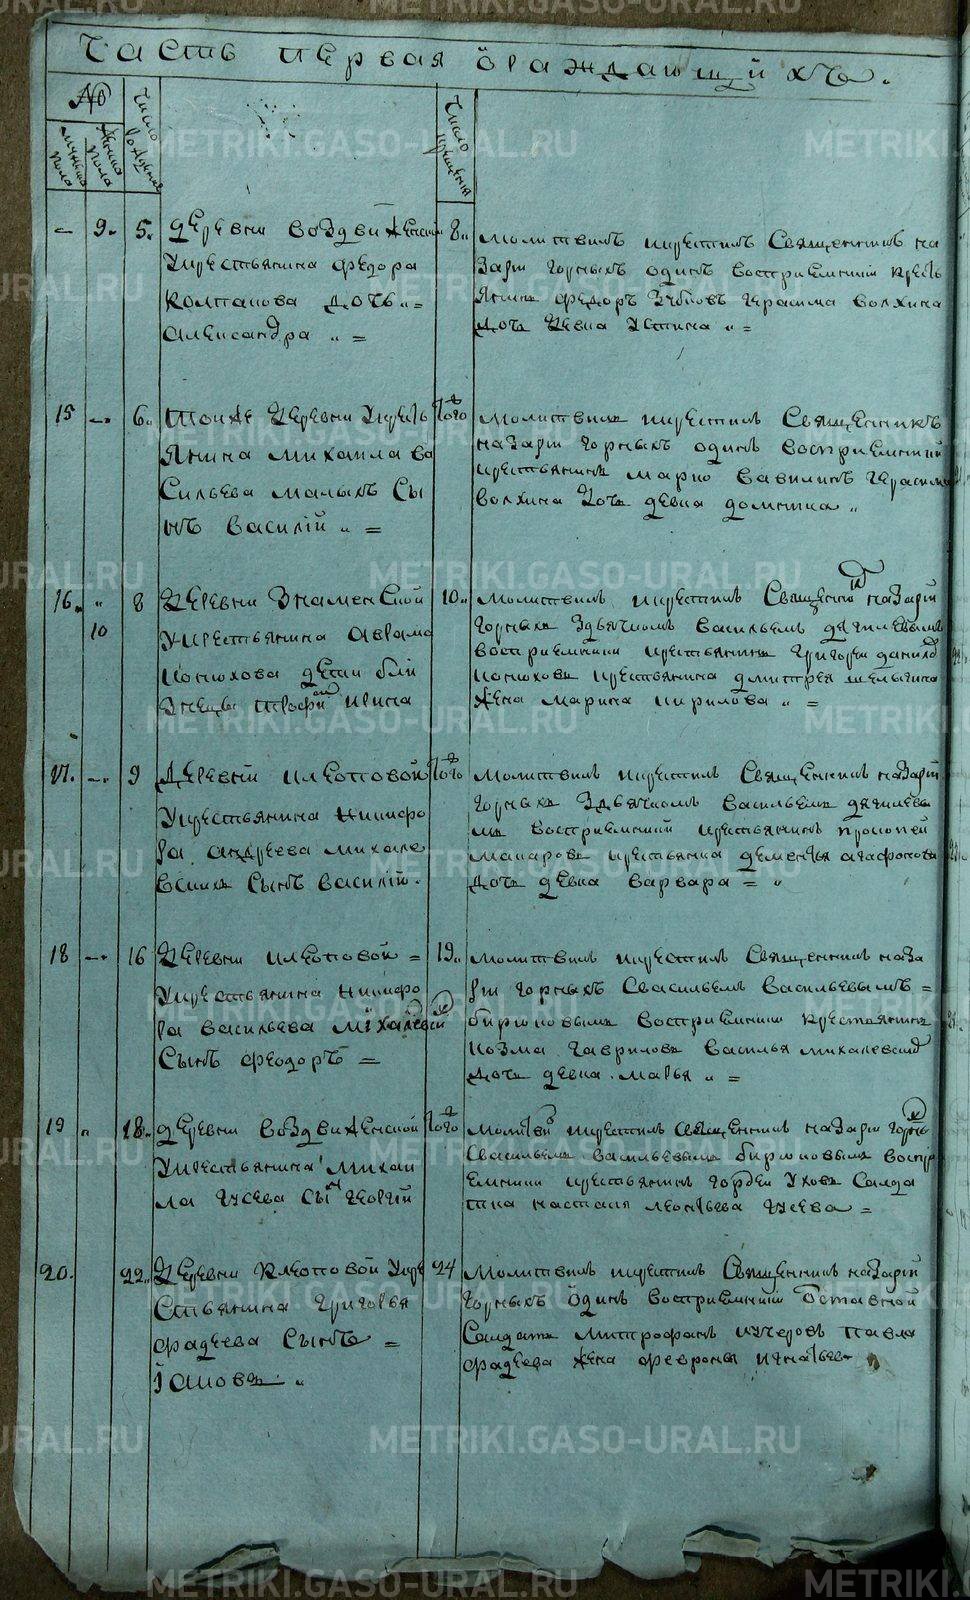 Часть первая ѡ раждающихъ.
№
мужеска пола
женска пола
Число рожденія
Число крещенія
— 9. 5. деревни воздвиженской
крестьянина федора
колпакова дочь
александра
8. молитвилъ и крестилъ священникъ на
зари горныхъ одинъ восприемники кресть
янинъ федоръ герасима волхина
дочь девка устина
15 — 6. тоиже деревни кресть
янина михаила ва
сильева малыхъ сы
нъ василiй
того молитвилъ и крестилъ священникъ
назари горныхъ одинъ восприемники
крестьянинъ марко вавилинъ герасима
волхина дочь девка домника
16. 10 8 деревни знаменской
крестьянина аврама
конюхова дети бли
знецы трофи ирина
10. молитвилъ и крестилъ священни назарiй
горныхъ здьячкомъ васильемъ дягилевымъ
восприемники крестьянинъ григореи данило
конюховъ крестьянина дмитрея шелыгина
жена марина кирилова
17. — 9 деревни клеоповой
крестьянина никифо
ра андреева михале
выхъ сынъ василiй.
того молитвилъ и крестилъ священникъ назарiй
горныхъ здьячкомъ васильемъ дягилевы
мъ восприемники крестьянинъ прокопей
макаровъ крестьянина дементья агафонова
дочь девка варвара
18 — 16 деревни клеоповой
крестьянина никифо
ра васильева михалевых
сынъ феодоръ
19. молитвилъ и крестилъ священникъ наза
рiи горныхъ свасильемъ васильевымъ
бирюковымъ восприемники крестьянинъ
козма гавриловъ василья михалевских
дочь девка марья
19 18. деревни воздвиженской
крестьянина михаи
ла гусева сынъ георгiй
того молитвил и крестилъ священникъ назари горных
свасильемъ васильевымъ бирюковымъ воспрі
емники крестьянинъ гордеи уховъ салда
тка настасия леонтьева гусева
20. 22. деревни клеоповой кре
стьянина григорья
фадеева сынъ
iаковъ
24 молитвилъ и крестилъ священникъ назарiй
горныхъ ѡдинъ восприемники ѡставной
салдатъ митрофанъ кучеровъ павла
фадеева жена февронья игнатьев
METRIKI.GASO-URAL.RU